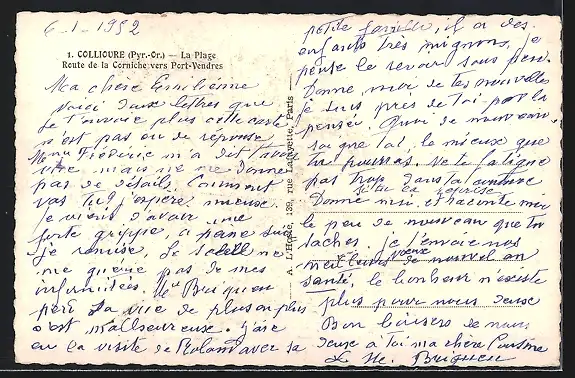 6-1-1952
1. COLLIOURE (Pyr.-Or.) — La Plage
Route de la Corniche vers Port-Vendres
Ma chère Emilienne
voici deux lettres que
je t'envoie plus cette carte
n'est pas ou de réponse
Mme Frédéric m'a dit t'avoir
vue mais ne me donne
pas de détails. Comment
vas tu j'espère mieux.
je viens d'avoir une
forte grippe, a peine suis
je remise. Le soleil ne
me guérie pas de mes
infirmitées. Me Briqueu
perd la vue de plus en plus
s'est malheureuse. j'aie
eu la visite de Roland avec sa
A. L'Hoste, 139, rue Lafayette, Paris
petite famille, il a des
enfants très mignons, je
pense le revoir sous peu.
Donne moi de tes nouvelles
je suis près de toi par la
pensée. Quoi de nouveau
soigne toi, le mieux que
tu pourras, ne te fatigue
pas trop dans ta couture
si tu en
Donne moi, et raconte moi
le peu de nouveau que tu
saches, je t'envoie nos
meilleurs vœux de nouvel an
santé, le bonheur n'existe
plus pour nous deux
Bon baisers de nous
deux à toi ma chère Cousine
Me Briqueu